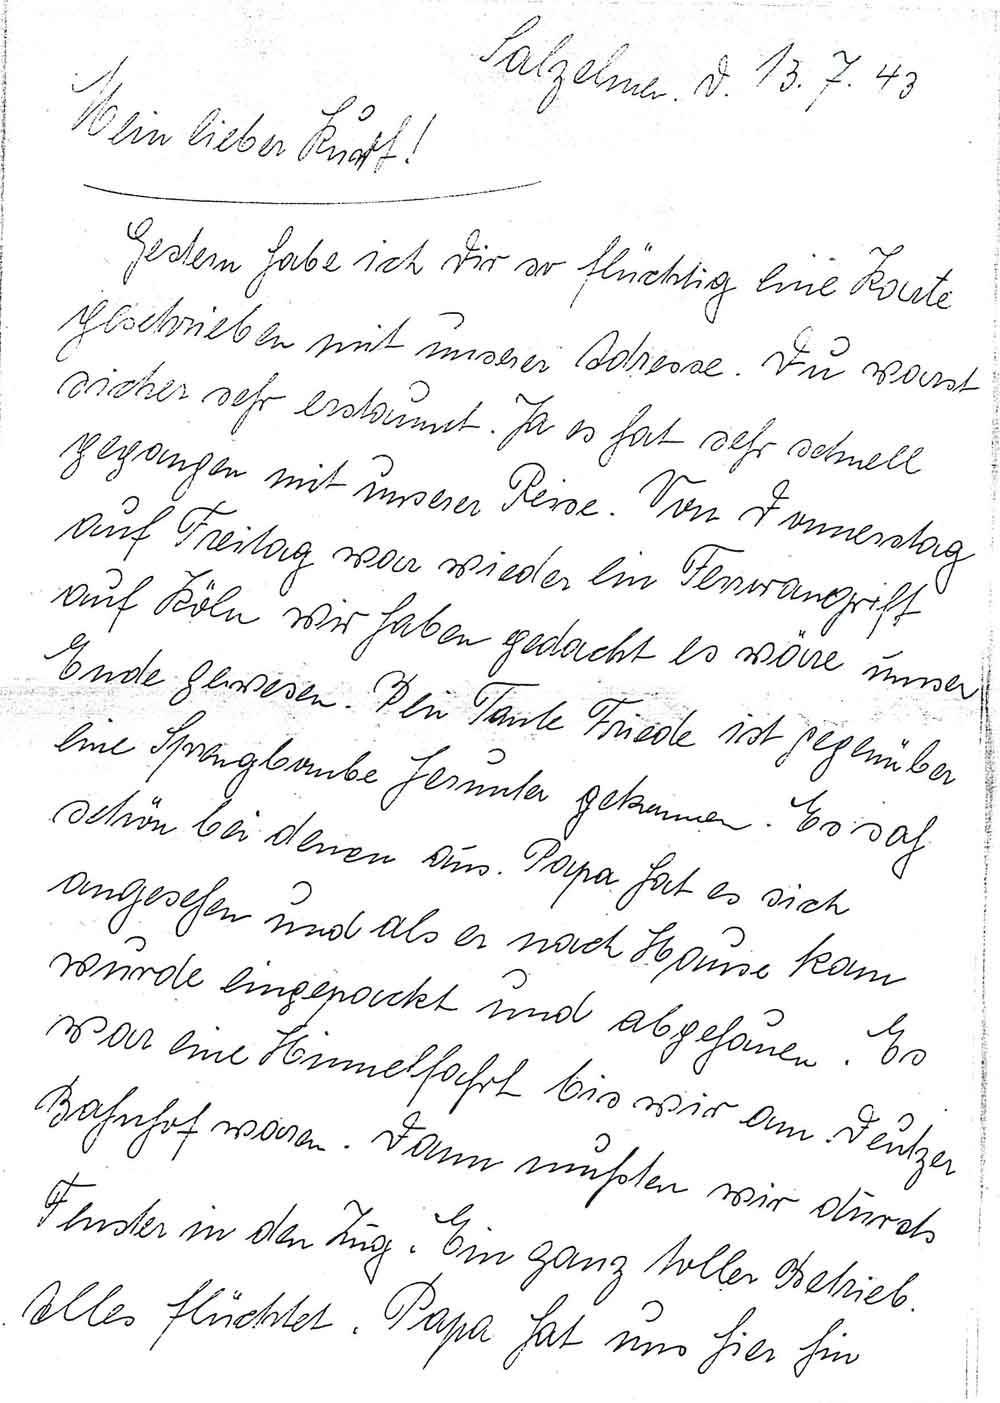 Salzelmen. d. 13. 7. 43
Mein lieber Kurt!
Gestern habe ich Dir so flüchtig eine Karte
geschrieben mit unserer Adresse. Du warst
sicher sehr erstaunt. Ja es hat sehr schnell
gegangen mit unserer Reise. Von Donnerstag
auf Freitag war wieder ein Terrorangriff
auf Köln wir haben gedacht es wäre unser
Ende gewesen. Bei Tante Friede ist gegenüber
eine Sprengbombe herunter gekommen. Es sah
schön bei denen aus. Papa hat es sich
angesehen und als er nach Hause kam
wurde eingepackt und abgehauen. Es
war eine Himmelfahrt bis wir am Deutzer
Bahnhof waren. Dann mußten wir durchs
Fenster in den Zug. Ein ganz toller Betrieb.
Alles flüchtet. Papa hat uns hier hin